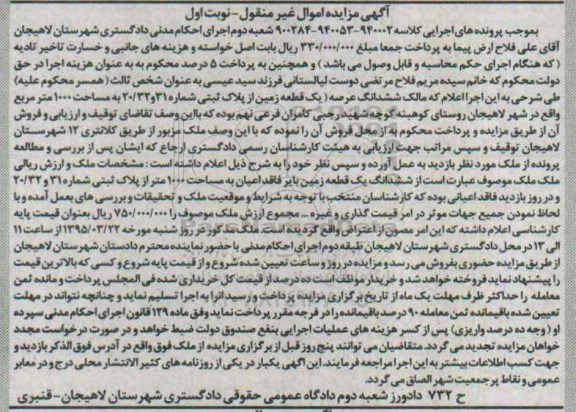 آگهی مزایده اموال غیر منقول-نوبت اول
بموجب پرونده‌های اجرایی کلاسه ۹۴۰۰۲-۹۴۰۰۵۳-۹۰۰۲۸۴ شعبه دوم اجرای احکام مدنی دادگستری شهرستان لاهیجان
آقای علی فلاح ارض پیما به پرداخت جمعا مبلغ ۳۳۰/۰۰۰/۰۰۰ ریال بابت اصل خواسته و هزینه های جانبی و خسارت تاخیر تادیه
(که هنگام اجرای حکم محاسبه و قابل وصول می باشد) و همچنین به پرداخت ۵ درصد محکوم به به عنوان هزینه اجرا در حق
دولت محکوم که خانم سیده مریم فلاح مرتضی دوست لیالستانی فرزند سید عیسی به عنوان شخص ثالث (همسر محکوم علیه)
طی شرحی به این اجرا اعلام که مالک ششدانگ عرصه (یک قطعه زمین از پلاک ثبتی شماره ۳۱ و ۲۰/۳۲ به مساحت ۱۰۰۰ متر مربع
واقع در شهر لاهیجان روستای کوهبنه کوچه شهید رجبی کامران فرعی نهم بوده که با این وصف تقاضای توقیف و ارزیابی و فروش
آن از طریق مزایده و پرداخت محکوم به از محل فروش آن را نموده که با این وصف ملک مزبور از طریق کلانتری ۱۲ شهرستان
لاهیجان توقیف و سپس مراتب جهت ارزیابی به هیئت کارشناسان رسمی دادگستری ارجاع که ایشان پس از بررسی و مطالعه
پرونده از ملک مورد نظر بازدید به عمل آورده و سپس نظر خود را به شرح ذیل اعلام داشته است: مشخصات ملک و ارزش ریالی
ملک ملک موصوف عبارت است از ششدانگ یک قطعه زمین بایر فاقد اعیان به مساحت ۱۰۰۰ متر از پلاک ثبتی شماره ۳۱ و ۲۰/۳۲
و در روز بازدید فاقد اعیانی بوده که کارشناسان منتخب با توجه به شرایط و موقعیت ملک و تحقیقات و بررسی های بعمل آمده و با
لحاظ نمودن جمیع جهات موثر در امر قیمت گذاری و غیره ... مجموع ارزش ملک موصوف را ۷۵۰/۰۰۰/۰۰۰ ریال بعنوان قیمت پایه
کارشناسی اعلام داشته که این امر مصون از اعتراض واقع گردیده است. ملک مذکور در روز شنبه مورخه ۱۳۹۵/۰۳/۲۲ از ساعت ۱۱
الی ۱۳ در محل دادگستری شهرستان لاهیجان طبقه دوم اجرای احکام مدنی با حضور نماینده محترم دادستان شهرستان لاهیجان
از طریق مزایده حضوری بفروش می رسد و مزایده در روز و ساعت تعیین شده شروع و از قیمت پایه شروع و کسی که بالاترین قیمت
را پیشنهاد نماید فروخته خواهد شد و خریدار موظف است ده درصد از قیمت کل خریداری شده فی المجلس پرداخت و مانده ثمن
معامله را حداکثر ظرف مهلت یک ماه از تاریخ برگزاری مزایده پرداخت و رسید آنرا به اجرا تسلیم نماید و چنانچه نتواند در مهلت
تعیین شده باقیمانده ثمن معامله ۹۰ درصد باقیمانده را در فرجه مقرر پرداخت نماید وفق ماده ۱۲۹ قانون اجرای احکام مدنی سپرده
او (وجه ده درصد واریزی) پس از کسر هزینه های عملیات اجرایی بنفع صندوق دولت ضبط خواهد و در صورت درخواست مجدد
خواهان مزایده تجدید می گردد. متقاضیان می توانند پنج روز قبل از برگزاری مزایده از ملک فوق واقع در آدرس فوق الذکر بازدید و
جهت کسب اطلاعات بیشتر به این اجرا مراجعه فرمایند. این آگهی یکبار در یکی از روزنامه های کثیر الانتشار محلی درج و در معابر
عمومی و نقاط پر جمعیت شهر الصاق می گردد.
ح ۷۳۲ دادورز شعبه دوم دادگاه عمومی حقوقی دادگستری شهرستان لاهیجان-قنبری